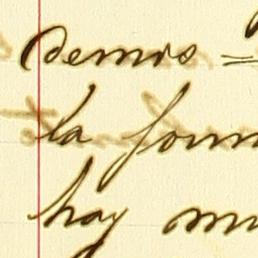 demos =
la form
hay mu